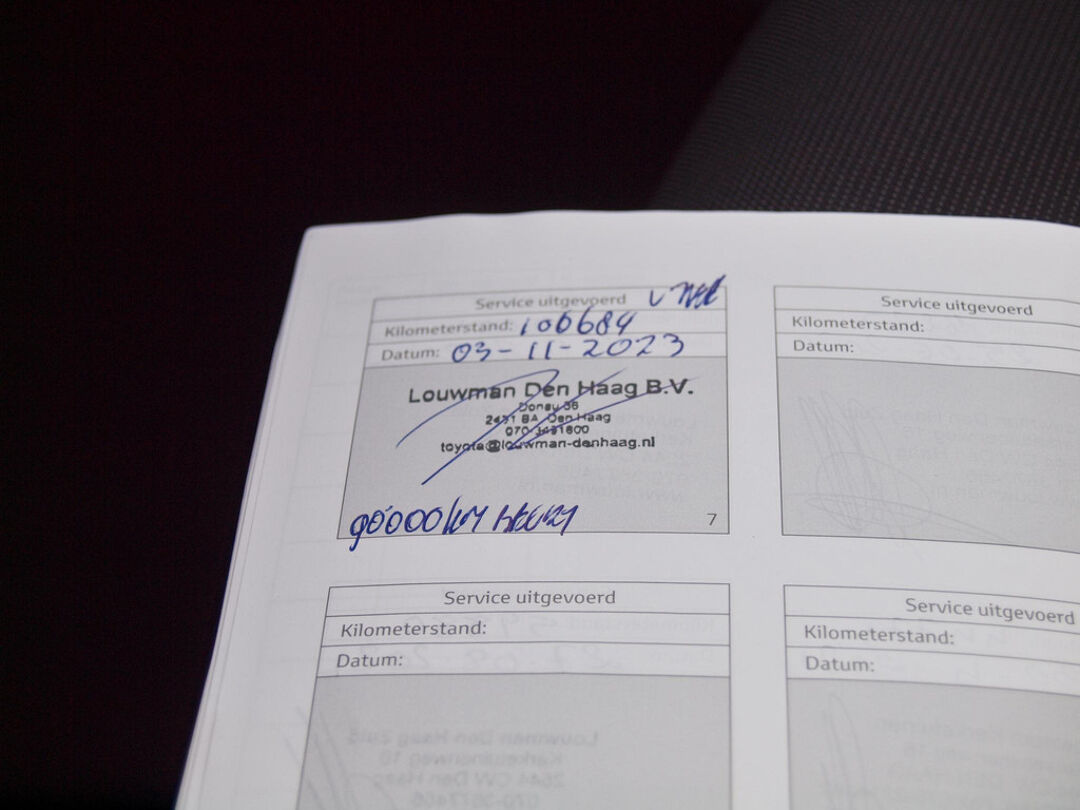 Service uitgevoerd
Kilometerstand: 106684
Datum: 03-11-2023
Louwman Den Haag B.V.
Donau 36
2491 BA Den Haag
070-3481800
toyota@louwman-denhaag.nl
90000km
7
Service uitgevoerd
Kilometerstand:
Datum:
Service uitgevoerd
Kilometerstand:
Datum:
Service uitgevoerd
Kilometerstand:
Datum: